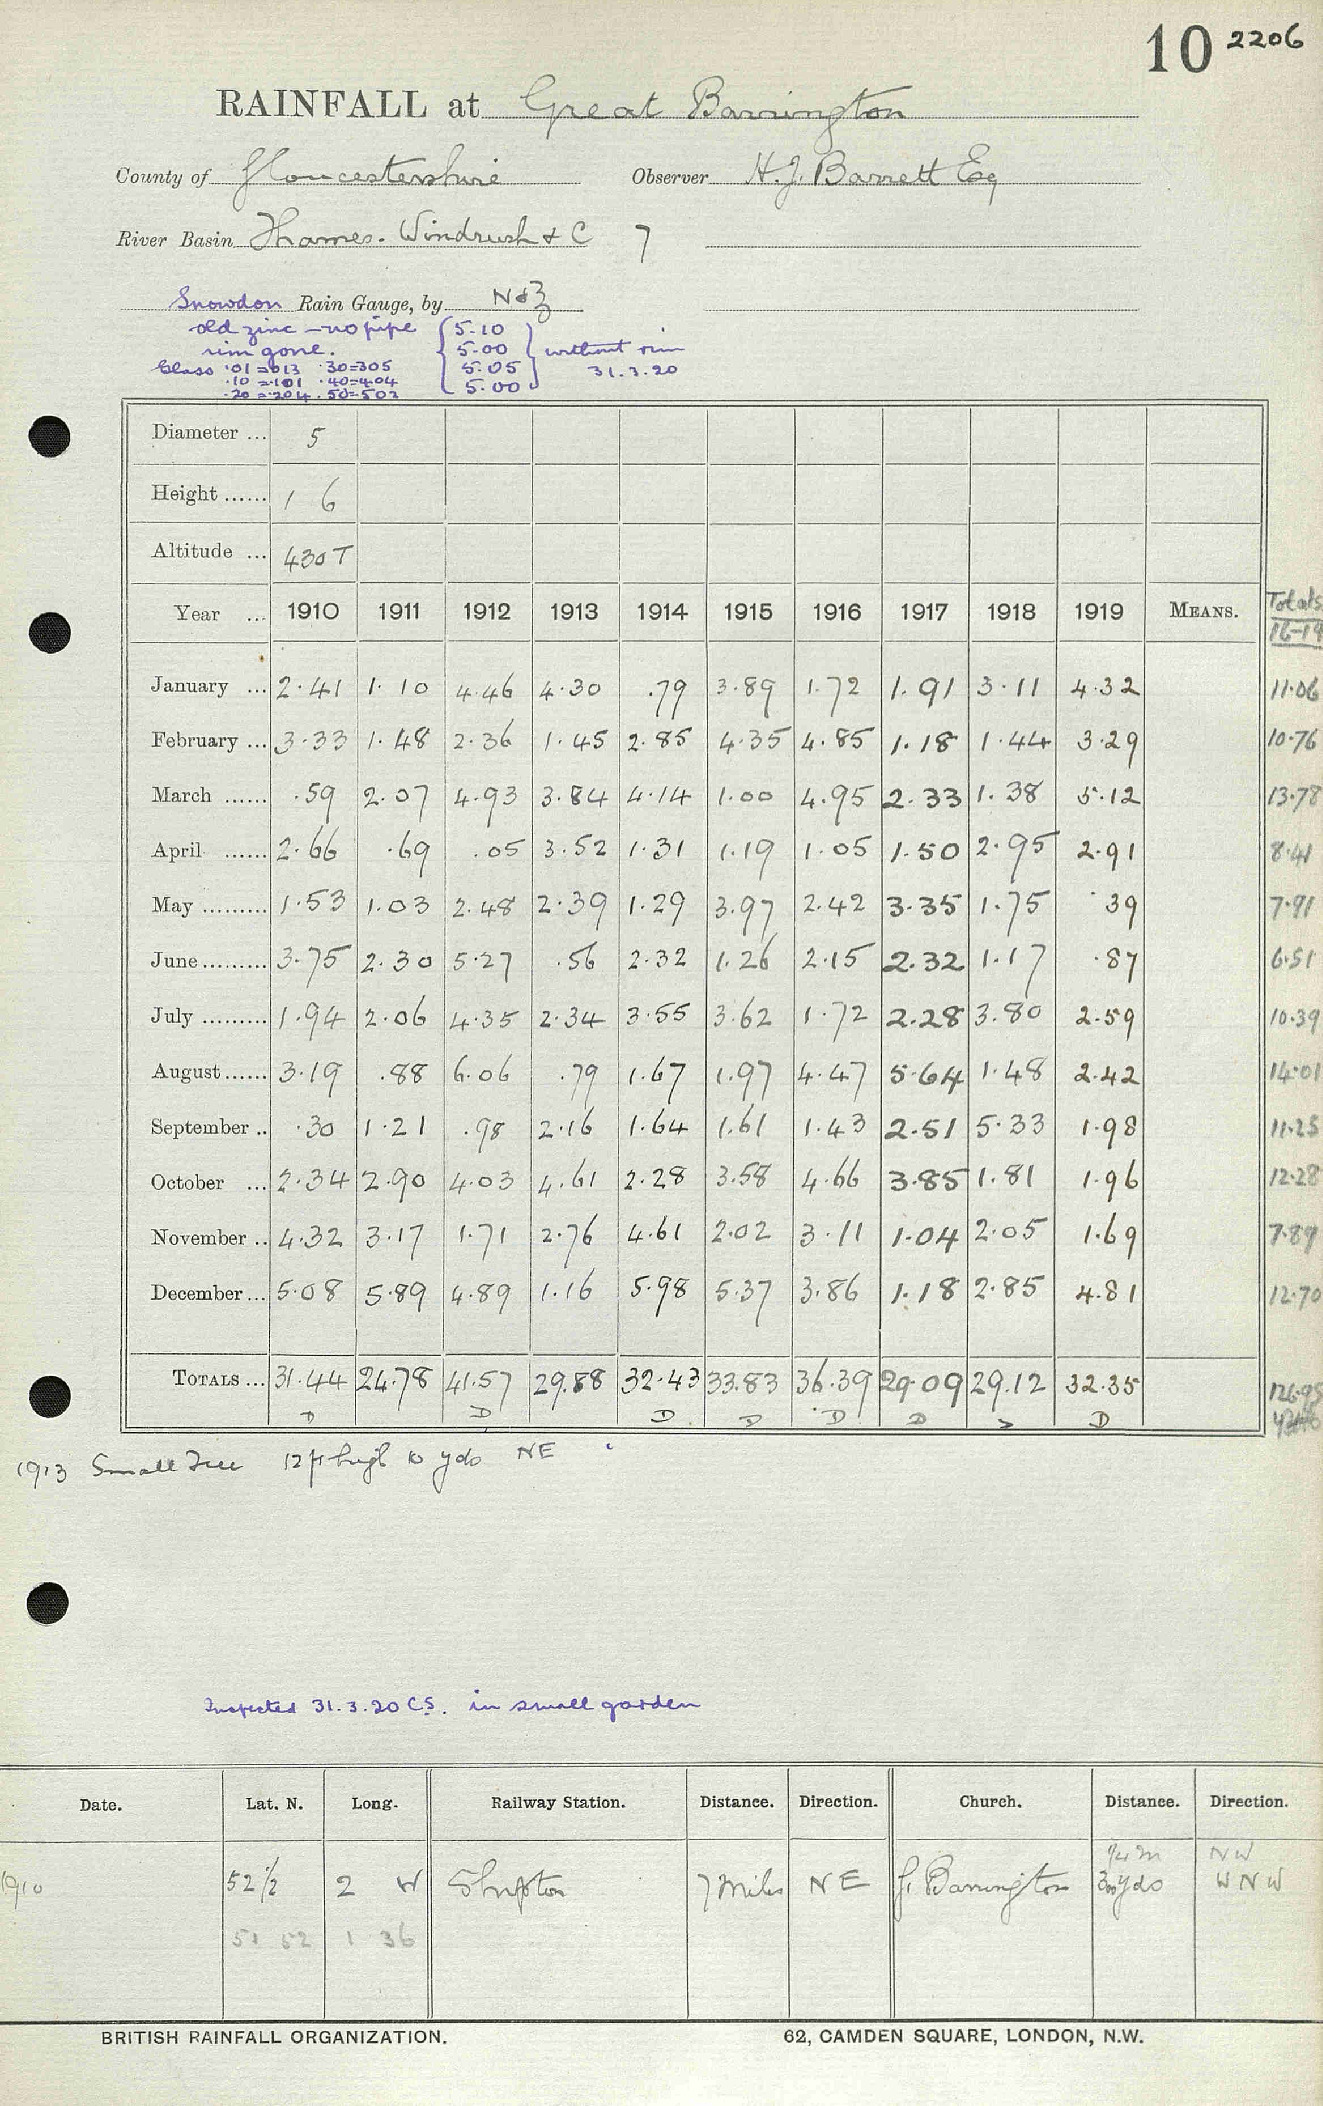 10 2206
RAINFALL at Great Barrington
County of Gloucestershire Observer H. J. Barrett Esq
River Basin Thames. Windrush & C 7
Snowdon Rain Gauge, by N&Z
old zinc – no pipe { 5.10 }
rim gone. { 5.00 } without rim
Glass .01=.013 .30=305 { 5.05 } 31.3.20
.10=.101 .40=404 { 5.00 }
.20=.204 .50=502
Diameter ... 5
Height ...... 1 6
Altitude ... 430 T
Year ... 1910 1911 1912 1913 1914 1915 1916 1917 1918 1919 MEANS. Totals 16-19
January ... 2.41 1.10 4.46 4.30 .79 3.89 1.72 1.91 3.11 4.32 11.06
February ... 3.33 1.48 2.36 1.45 2.85 4.35 4.85 1.18 1.44 3.29 10.76
March ...... .59 2.07 4.93 3.84 4.14 1.00 4.95 2.33 1.38 5.12 13.78
April ...... 2.66 .69 .05 3.52 1.31 1.19 1.05 1.50 2.95 2.91 8.41
May ......... 1.53 1.03 2.48 2.39 1.29 3.97 2.42 3.35 1.75 .39 7.91
June ......... 3.75 2.30 5.27 .56 2.32 1.26 2.15 2.32 1.17 .87 6.51
July ......... 1.94 2.06 4.35 2.34 3.55 3.62 1.72 2.28 3.80 2.59 10.39
August ...... 3.19 .88 6.06 .79 1.67 1.97 4.47 5.64 1.48 2.42 14.01
September .. .30 1.21 .98 2.16 1.64 1.61 1.43 2.51 5.33 1.98 11.25
October ... 2.34 2.90 4.03 4.61 2.28 3.58 4.66 3.85 1.81 1.96 12.28
November .. 4.32 3.17 1.71 2.76 4.61 2.02 3.11 1.04 2.05 1.69 7.89
December ... 5.08 5.89 4.89 1.16 5.98 5.37 3.86 1.18 2.85 4.81 12.70
TOTALS ... 31.44 24.78 41.57 29.88 32.43 33.83 36.39 29.09 29.12 32.35 126.95
D D D D D D D
1913 Small Tree 12 ft high 10 yds NE
Inspected 31.3.20 C.S. in small garden
Date. Lat. N. Long. Railway Station. Distance. Direction. Church. Distance. Direction.
1/4 m NW
1910 52 1/2 2 W Shipton 7 Miles NE G. Barrington 300 yds WNW
51 52 1 36
BRITISH RAINFALL ORGANIZATION. 62, CAMDEN SQUARE, LONDON, N.W.